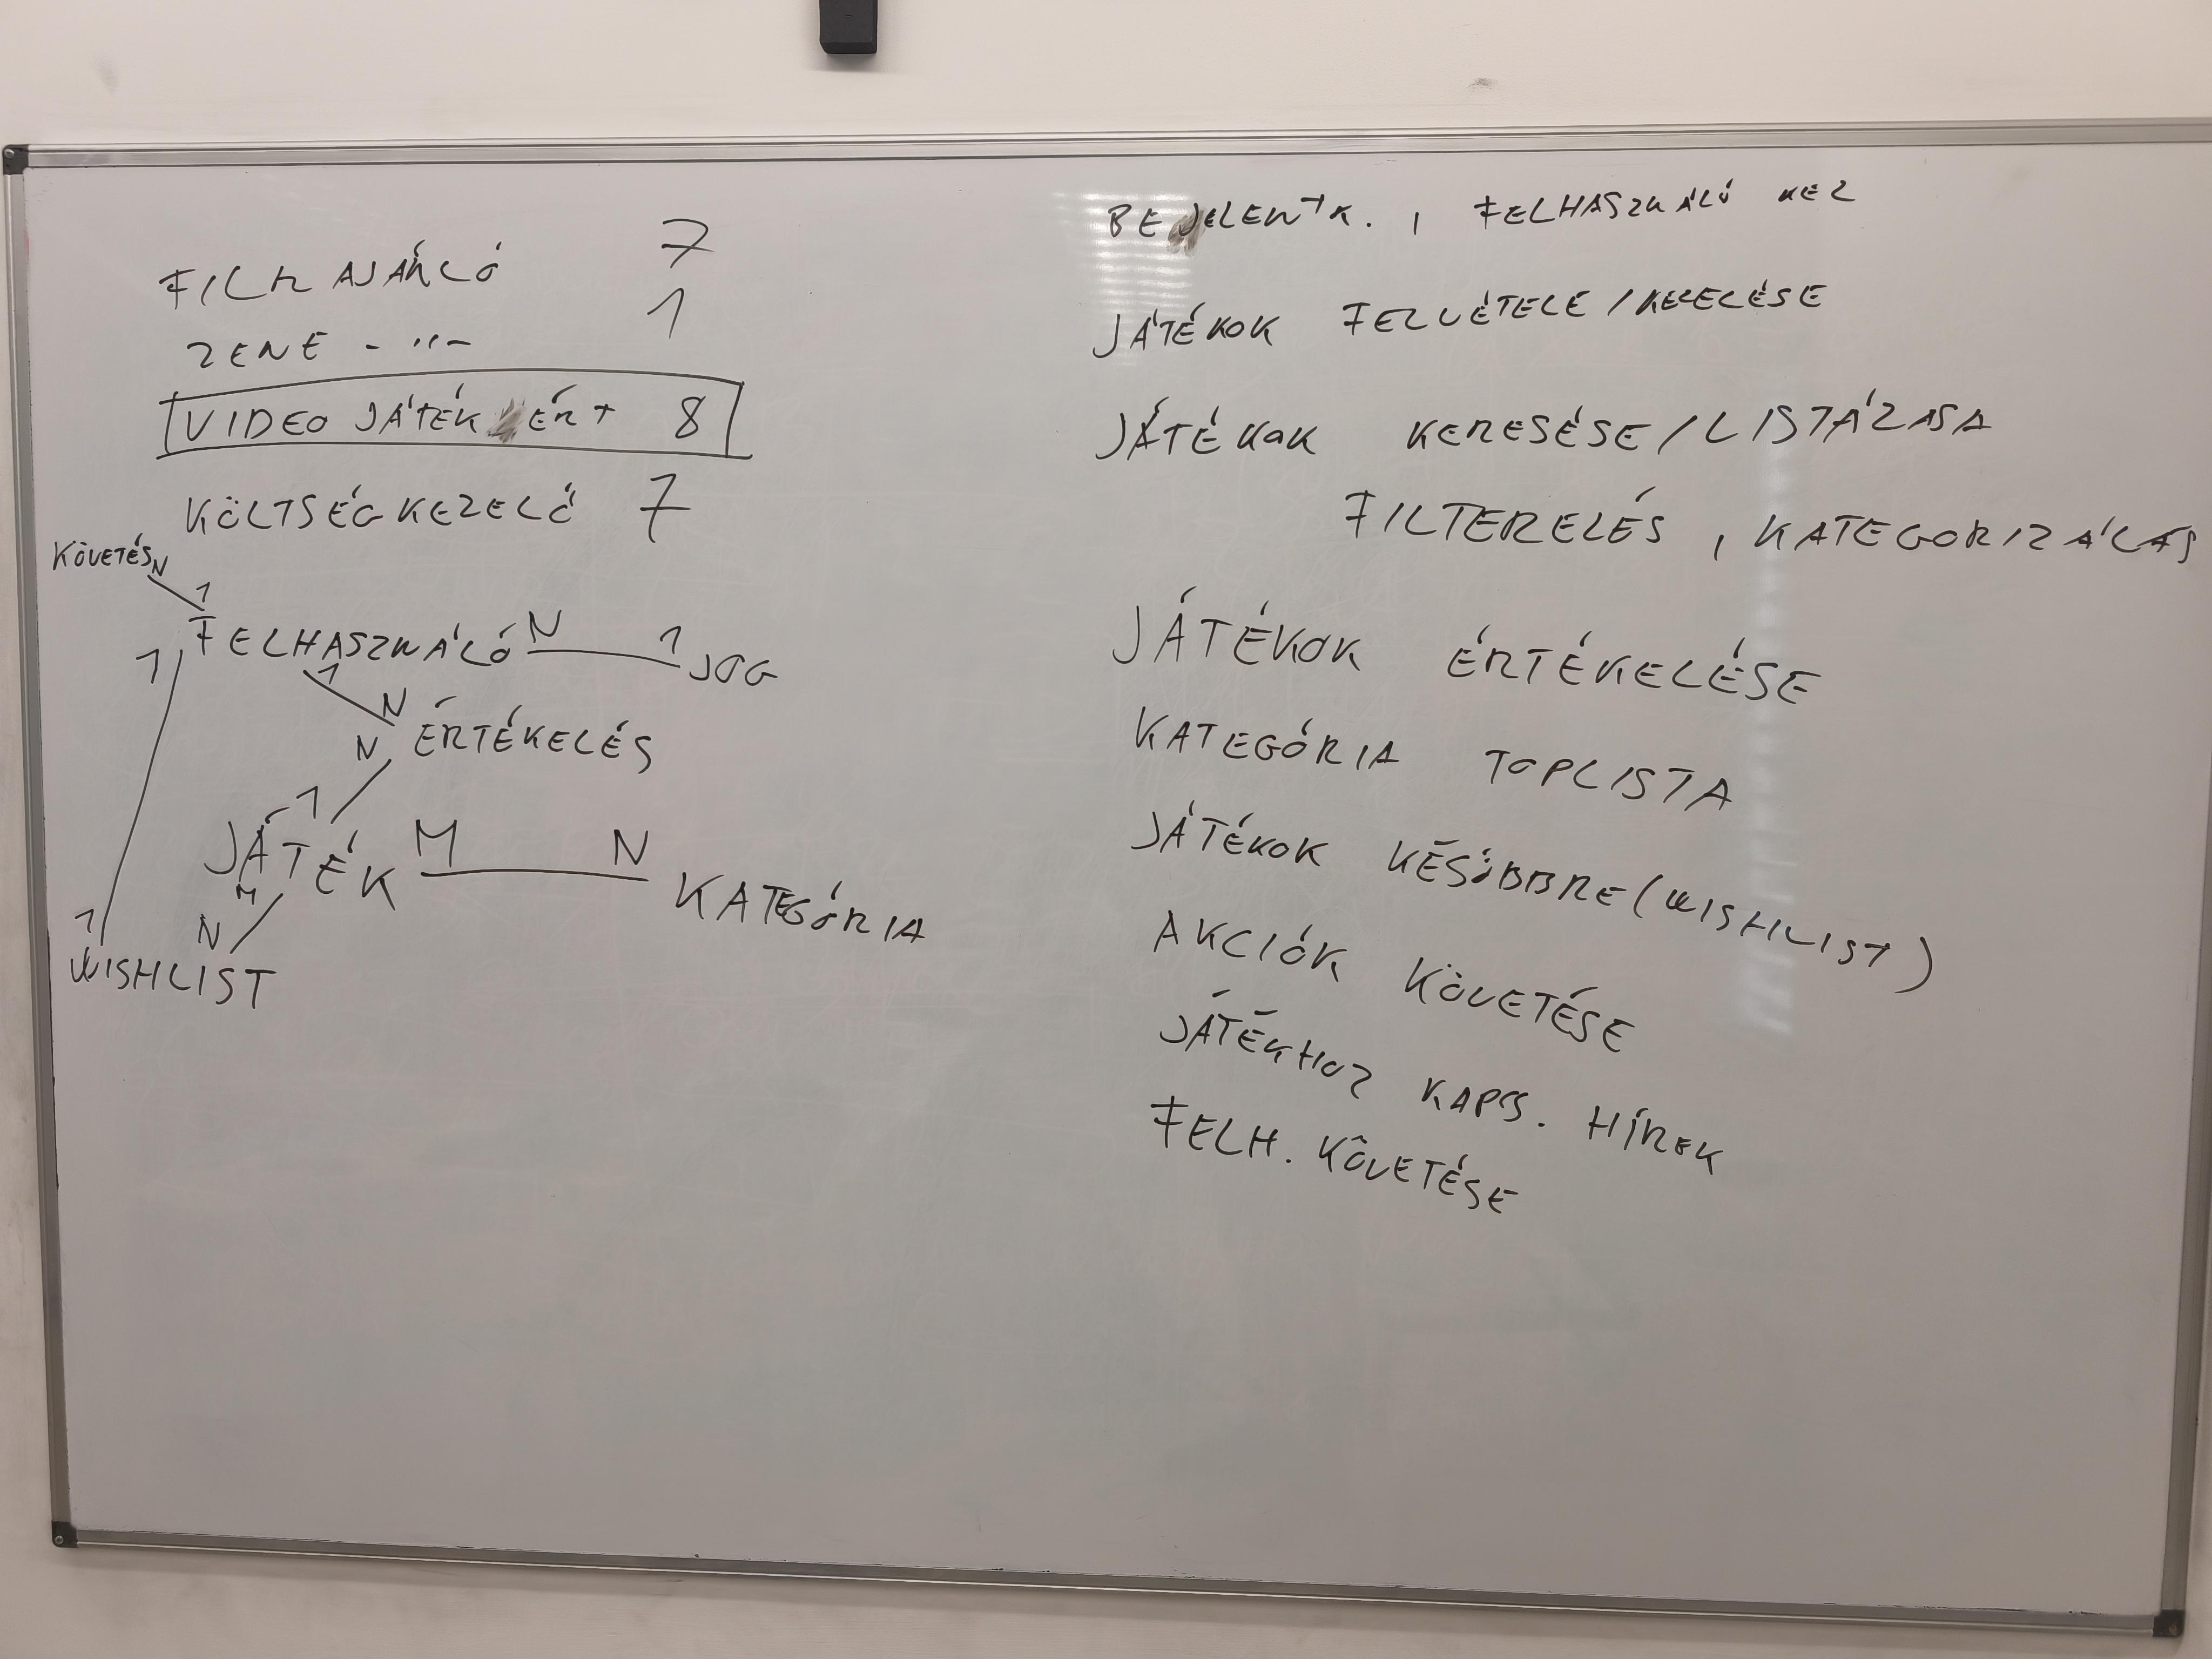 FILM AJÁNLÓ 7
ZENE - "- 1
VIDEO JÁTÉK ÉRT 8
KÖLTSÉGKEZELŐ 7
KÖVETÉS N
1
FELHASZNÁLÓ N 1 JOG
1 1
N
N ÉRTÉKELÉS
1
JÁTÉK M N KATEGÓRIA
M
1 N
WISHLIST
BEJELENTK. , FELHASZNÁLÓ KEZ
JÁTÉKOK FELVÉTELE / KEZELÉSE
JÁTÉKOK KERESÉSE / LISTÁZÁSA
FILTERELÉS , KATEGORIZÁLÁS
JÁTÉKOK ÉRTÉKELÉSE
KATEGÓRIA TOPLISTA
JÁTÉKOK KÉSŐBBRE (WISHLIST)
AKCIÓK KÖVETÉSE
JÁTÉKHOZ KAPCS. HÍREK
FELH. KÖVETÉSE